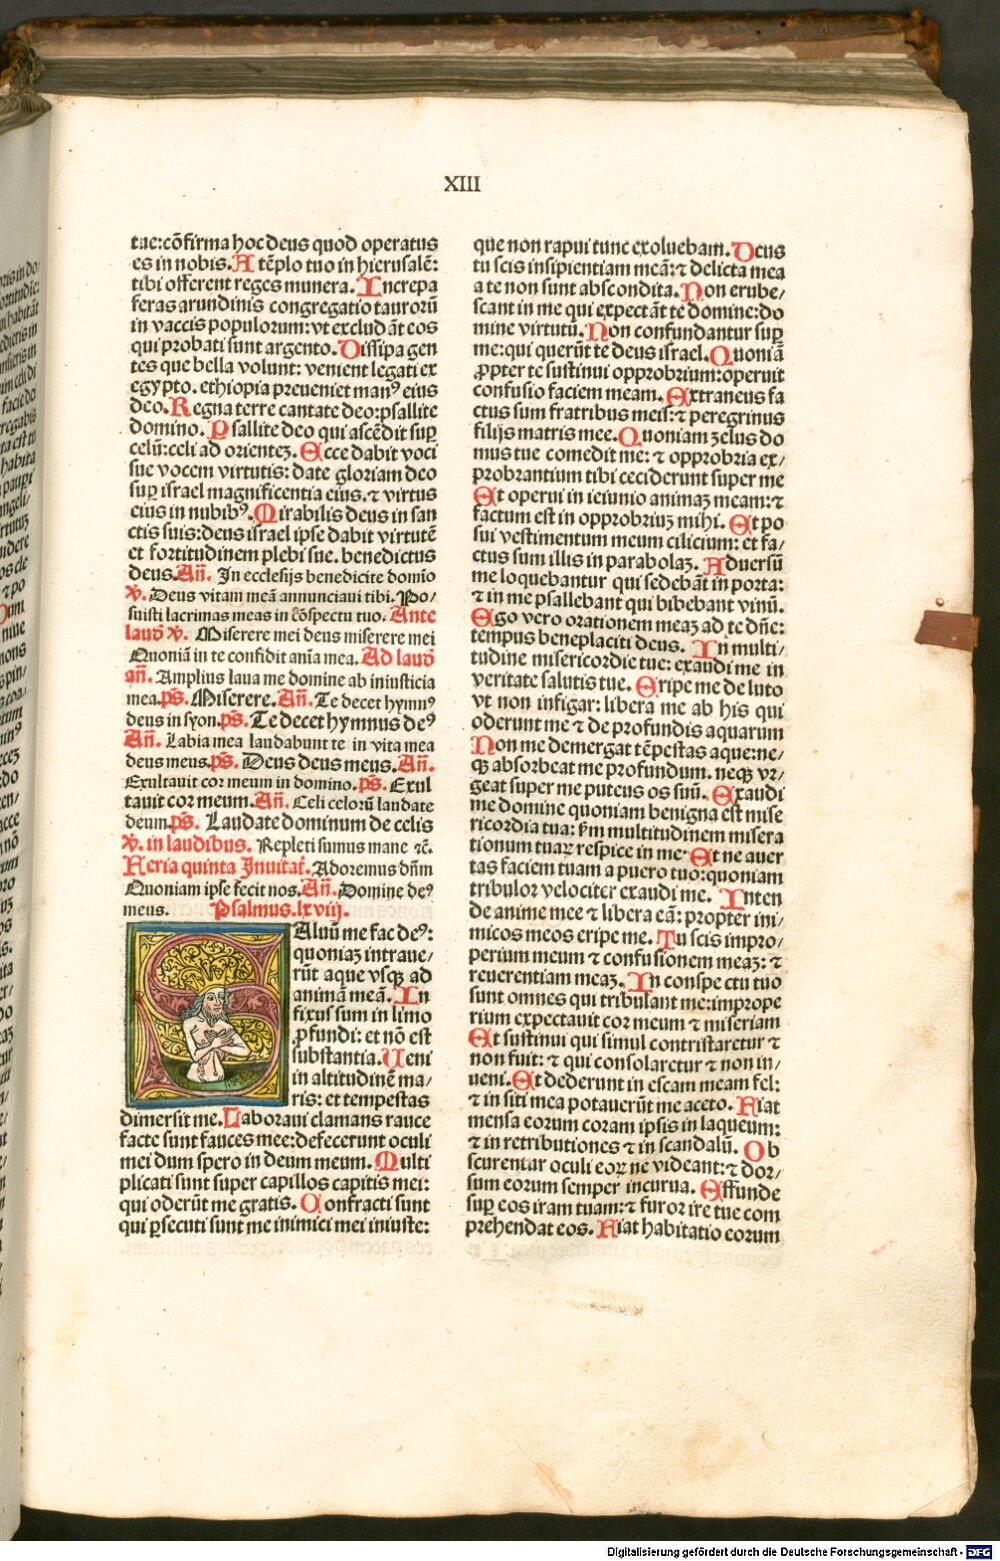 XIII
tue:cōfirma hoc deus quod operatus
es in nobis. A tēplo tuo in hierusalē:
tibi offerent reges munera. Increpa
feras arundinis congregatio taurorū
in vaccis populorum: vt excludāt eos
qui probati sunt argento. Dissipa gen
tes que bella volunt: venient legati ex
egypto. ethiopia preueniet manꝰ eius
deo. Regna terre cantate deo: psallite
domino. Psallite deo qui ascēdit suꝑ
celū: celi ad orienteꝫ. Ecce dabit voci
sue vocem virtutis: date gloriam deo
suꝑ israel magnificentia eius. ⁊ virtus
eius in nubibꝰ. Mirabilis deus in san
ctis suis: deus israel ipse dabit virtutē
et fortitudinem plebi sue. benedictus
deus. Añ. In ecclesijs benedicite domīo
℣. Deus vitam meā annunciaui tibi. Po/
suisti lacrimas meas in cōspectu tuo. Ante
laud̄ ℣. Miserere mei deus miserere mei
Quoniā in te confidit anīa mea. Ad laud̄
añ. Amplius laua me domine ab iniusticia
mea. p̄s. Miserere. Añ. Te decet hymnꝰ
deus in syon. p̄s. Te decet hymnus deꝰ
Añ. Labia mea laudabunt te in vita mea
deus meus. p̄s. Deus deus meus. Añ.
Exultauit cor meum in domino. p̄s. Exul
tauit cor meum. Añ. Celi celorū laudate
deum. p̄s. Laudate dominum de celis
℣. in laudibus. Repleti sumus mane ⁊c̄.
Feria quinta Inuitat̄. Adoremus dn̄m
Quoniam ipse fecit nos. Añ. Domine deꝰ
meus. Psalmus. lxviij.
Saluū me fac deꝰ:
quoniaꝫ intraue/
rūt aque vsqꝫ ad
animā meā. In
fixus sum in limo
ꝓfundi: et nō est
substantia. Ueni
in altitudinē ma/
ris: et tempestas
dimersit me. Laboraui clamans rauce
facte sunt fauces mee: defecerunt oculi
mei dum spero in deum meum. Multi
plicati sunt super capillos capitis mei:
qui oderūt me gratis. Confracti sunt
qui ꝑsecuti sunt me inimici mei iniuste:
que non rapui tunc exoluebam. Deus
tu scis insipientiam meā: ⁊ delicta mea
a te non sunt abscondita. Non erube/
scant in me qui expectāt te domine: do
mine virtutū. Non confundantur suꝑ
me: qui querūt te deus israel. Quoniā
ꝓpter te sustinui opprobrium: operuit
confusio faciem meam. Extraneus fa
ctus sum fratribus meis: ⁊ peregrinus
filijs matris mee. Quoniam ꝫelus do
mus tue comedit me: ⁊ opprobria ex/
probrantium tibi ceciderunt super me
Et operui in ieiunio animaꝫ meam: ⁊
factum est in opprobriuꝫ mihi. Et po
sui vestimentum meum cilicium: et fa/
ctus sum illis in parabolaꝫ. Aduersū
me loquebantur qui sedebāt in porta:
⁊ in me psallebant qui bibebant vinū.
Ego vero orationem meaꝫ ad te dn̄e:
tempus beneplaciti deus. In multi/
tudine misericordie tue: exaudi me in
veritate salutis tue. Eripe me de luto
vt non infigar: libera me ab his qui
oderunt me ⁊ de profundis aquarum
Non me demergat tēpestas aque: ne/
qꝫ absorbeat me profundum. neqꝫ vr/
geat super me puteus os suū. Exaudi
me domine quoniam benigna est mise
ricordia tua: ẜm multitudinem misera
tionum tuaꝝ respice in me. Et ne auer
tas faciem tuam a puero tuo: quoniam
tribulor velociter exaudi me. Inten
de anime mee ⁊ libera eā: propter ini/
micos meos eripe me. Tu scis impro/
perium meum ⁊ confusionem meaꝫ: ⁊
reuerentiam meaꝫ. In conspectu tuo
sunt omnes qui tribulant me: imprope
rium expectauit cor meum ⁊ miseriam
Et sustinui qui simul contristaretur ⁊
non fuit: ⁊ qui consolaretur ⁊ non in/
ueni. Et dederunt in escam meam fel:
⁊ in siti mea potauerūt me aceto. Fiat
mensa eorum coram ipsis in laqueum:
⁊ in retributiones ⁊ in scandalū. Ob
scurentur oculi eoꝝ ne videant: ⁊ dor/
sum eorum semper incurua. Effunde
suꝑ eos iram tuam: ⁊ furor ire tue com
prehendat eos. Fiat habitatio eorum
Digitalisierung gefördert durch die Deutsche Forschungsgemeinschaft - DFG